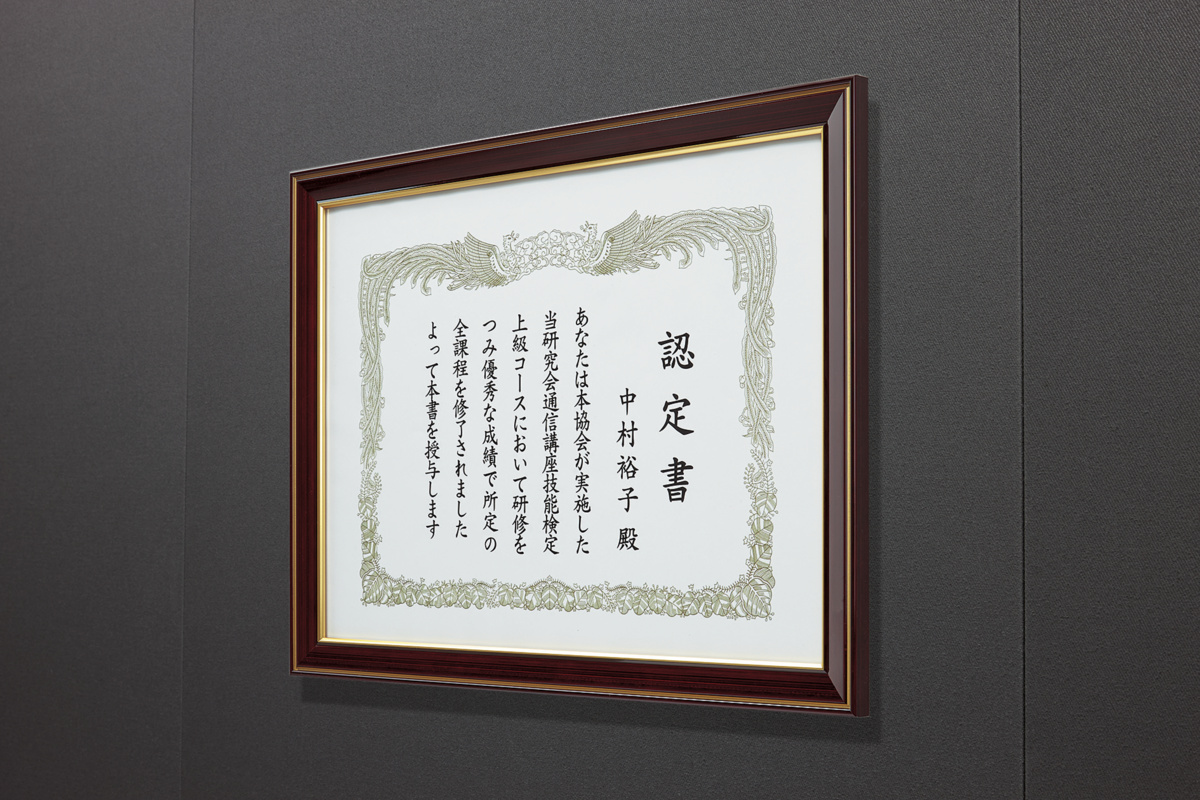 認定書
中村裕子 殿
あなたは本協会が実施した
当研究会通信講座技能検定
上級コースにおいて研修を
つみ優秀な成績で所定の
全課程を修了されました
よって本書を授与します